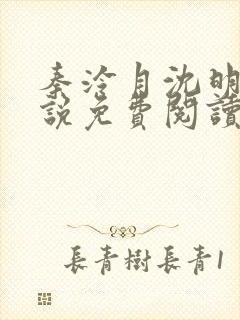 秦泠月沈明
說免費閱讀
長青樹長青1